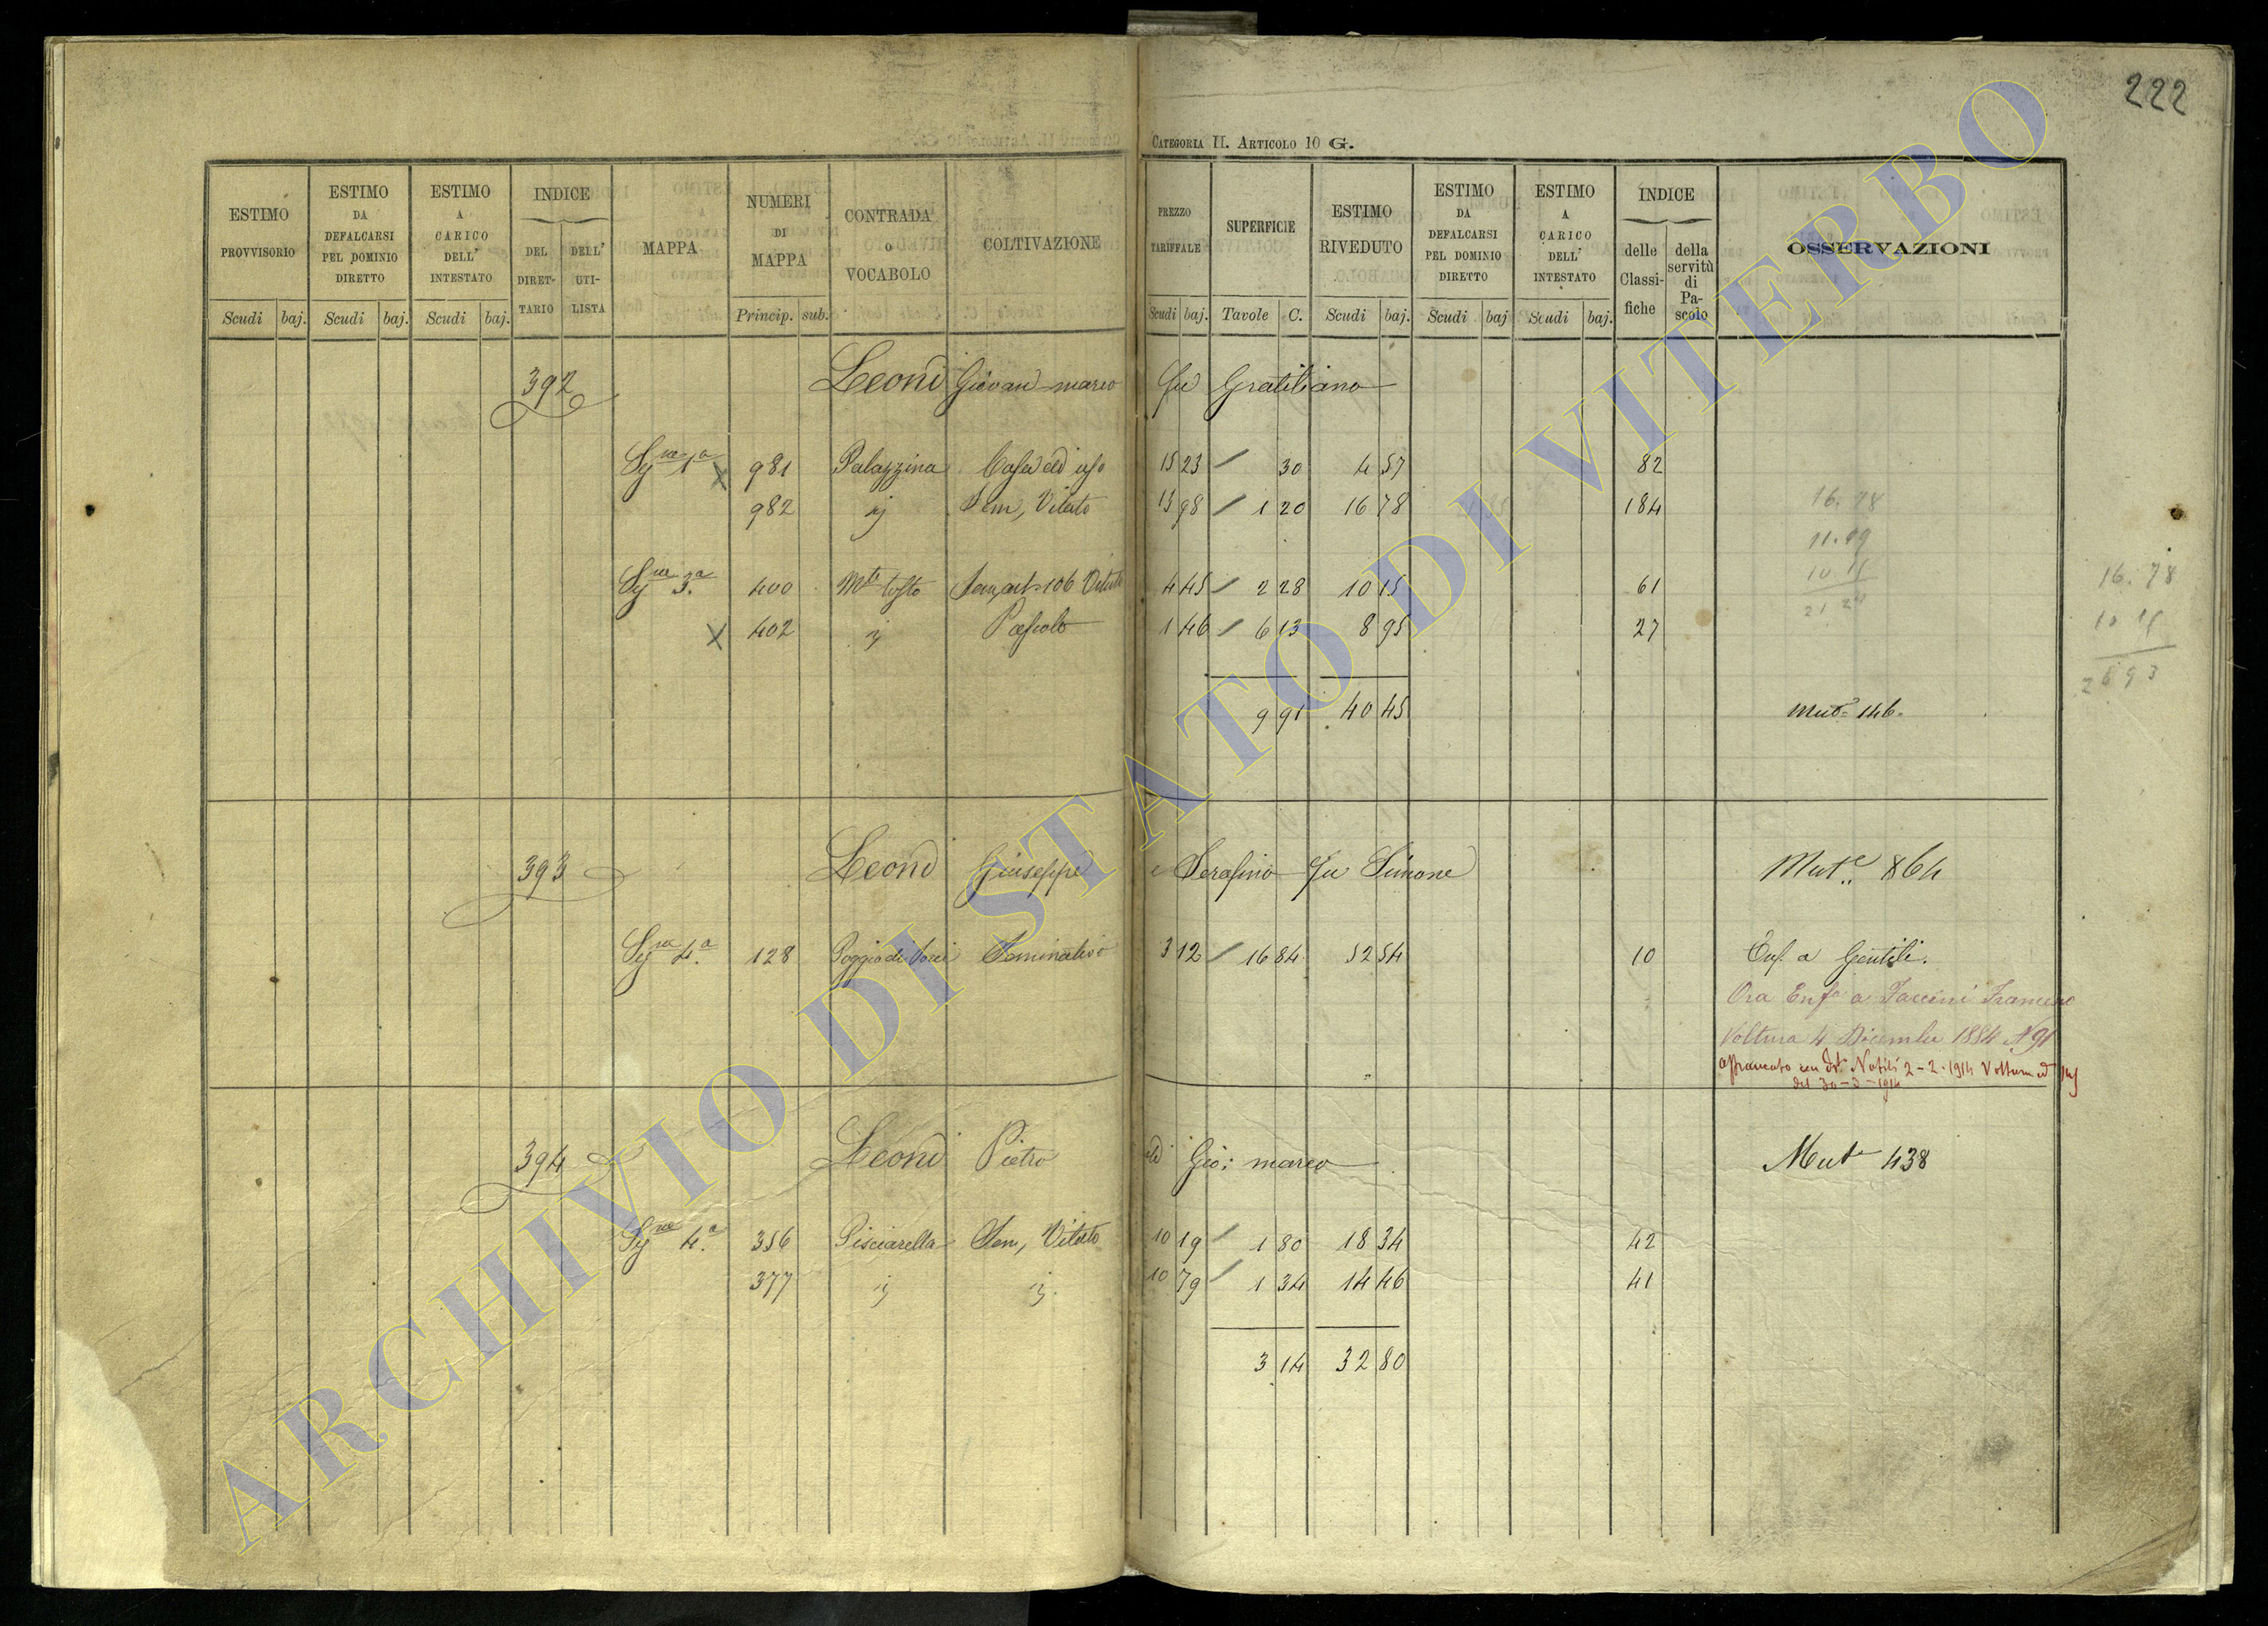 222
CATEGORIA II. ARTICOLO 10 G.
ESTIMO PROVVISORIO Scudi baj.
ESTIMO DA DEFALCARSI PEL DOMINIO DIRETTO Scudi baj.
ESTIMO A CARICO DELL' INTESTATO Scudi baj.
INDICE DEL DIRETTARIO DELL' UTILISTA
MAPPA
NUMERI DI MAPPA Princip. sub.
CONTRADA o VOCABOLO
COLTIVAZIONE
PREZZO TARIFFALE Scudi baj.
SUPERFICIE Tavole C.
ESTIMO RIVEDUTO Scudi baj.
ESTIMO DA DEFALCARSI PEL DOMINIO DIRETTO Scudi baj
ESTIMO A CARICO DELL' INTESTATO Scudi baj.
INDICE delle Classifiche della servitù di Pascolo
OSSERVAZIONI
392 Leoni Giovan marco fu Gratiliano
981 Palazzina Casa ad uso 15 23 / 30 4 57 82
982 Sem, Vitato 13 98 / 1 20 16 78 184
400 Mte tosto 106 4 45 / 2 28 10 15 61
402 Pascolo 1 46 / 6 13 8 95 27
9 91 40 45 Mut. 146.
16.78
10 15
16.78
10 15
26 93
393 Leoni Giuseppe e Serafino fu Simone Mute 864
128 Poggio di Seminativo 3 12 / 16 84 52 54 10 Enf. a Gentili.
Ora Enfa a Faccini Francesco
Voltura 4 Dicembre 1884 N 91
affrancato con Nobili 2-2-1914 Voltura
del 30-3-1914
394 Leoni Pietro di Gio: marco Mut 438
356 Pisciarella Sem, Vitato 10 19 / 1 80 18 34 42
377 10 79 / 1 34 14 46 41
3 14 32 80
ARCHIVIO DI STATO DI VITERBO